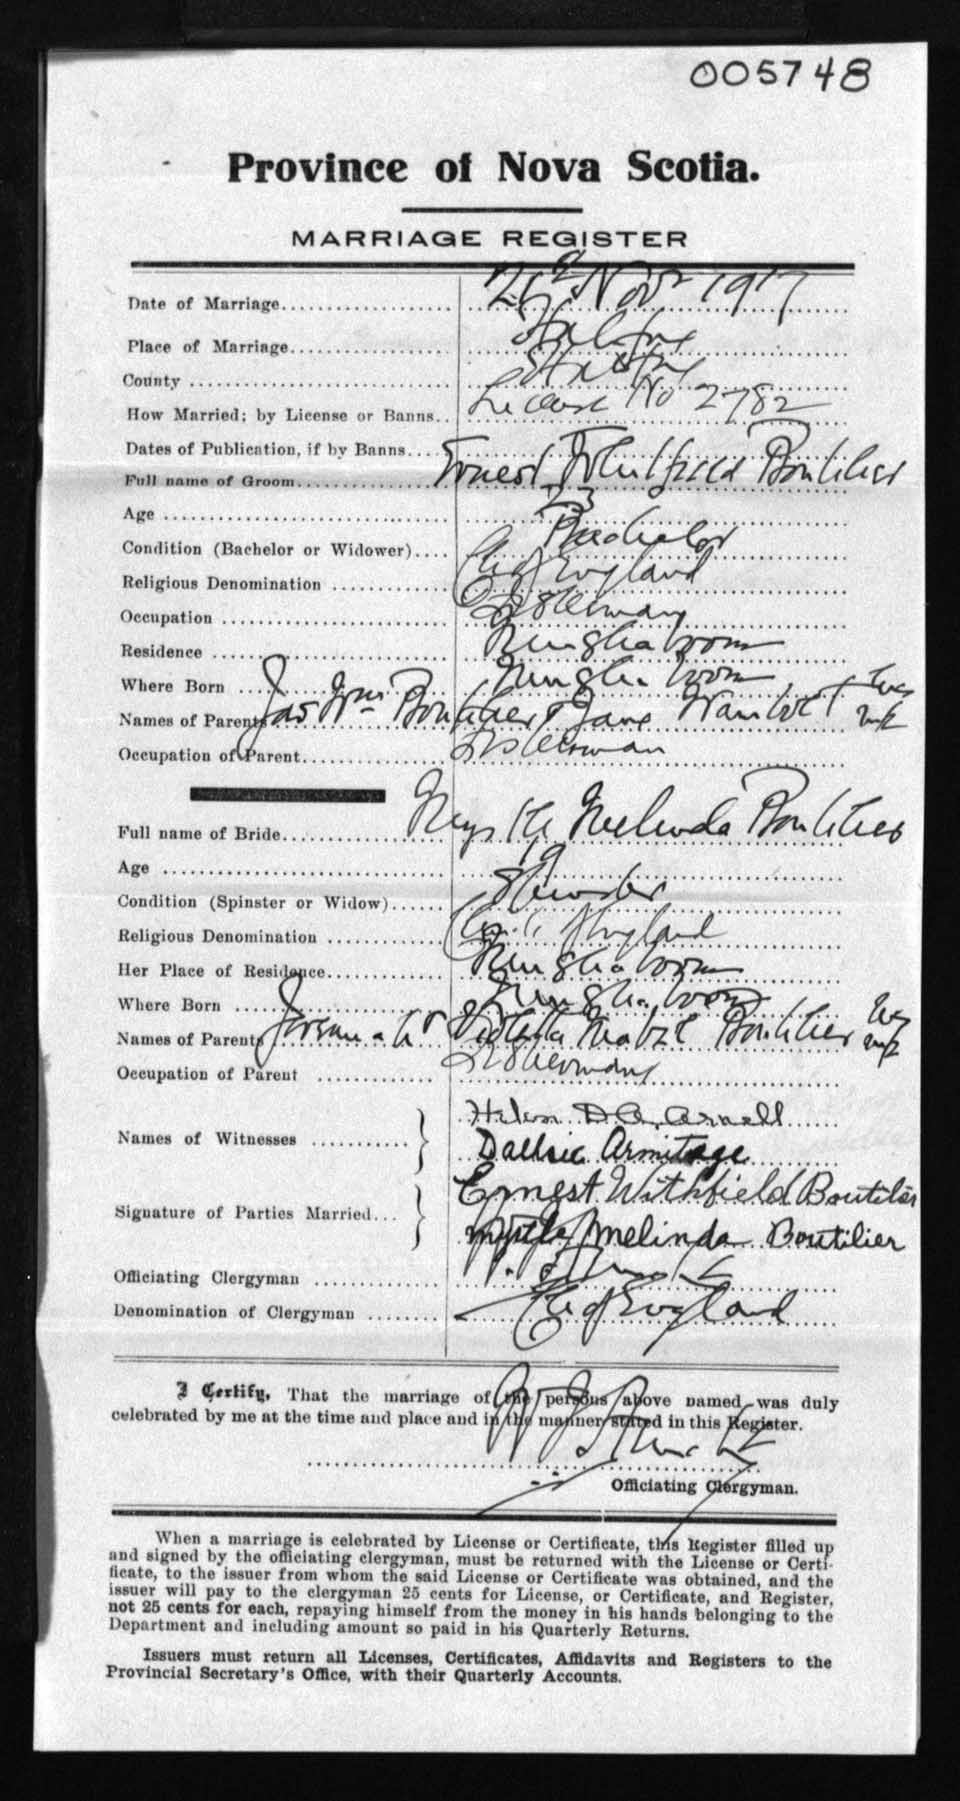 005748
Province of Nova Scotia.
MARRIAGE REGISTER
Date of Marriage 1917
Place of Marriage Halifax
County Halifax
How Married; by License or Banns License No 2782
Dates of Publication, if by Banns
Full name of Groom Ernest Whitfield Boutilier
Age 23
Condition (Bachelor or Widower) Bachelor
Religious Denomination Ch of England
Occupation Fisherman
Residence
Where Born
Names of Parents Jas Wm Boutilier & Jane
Occupation of Parent Fisherman
Full name of Bride Melinda Boutilier
Age 19
Condition (Spinster or Widow) Spinster
Religious Denomination Ch of England
Her Place of Residence
Where Born
Names of Parents Boutilier
Occupation of Parent Fisherman
Names of Witnesses Helen D. A. Arnell
Armitage
Signature of Parties Married Ernest Withfield Boutilier
Myrtle Melinda Boutilier
Officiating Clergyman
Denomination of Clergyman Ch of England
I Certify, That the marriage of the persons above named was duly
celebrated by me at the time and place and in the manner stated in this Register.
Officiating Clergyman.
When a marriage is celebrated by License or Certificate, this Register filled up
and signed by the officiating clergyman, must be returned with the License or Certi-
ficate, to the issuer from whom the said License or Certificate was obtained, and the
issuer will pay to the clergyman 25 cents for License, or Certificate, and Register,
not 25 cents for each, repaying himself from the money in his hands belonging to the
Department and including amount so paid in his Quarterly Returns.
Issuers must return all Licenses, Certificates, Affidavits and Registers to the
Provincial Secretary's Office, with their Quarterly Accounts.